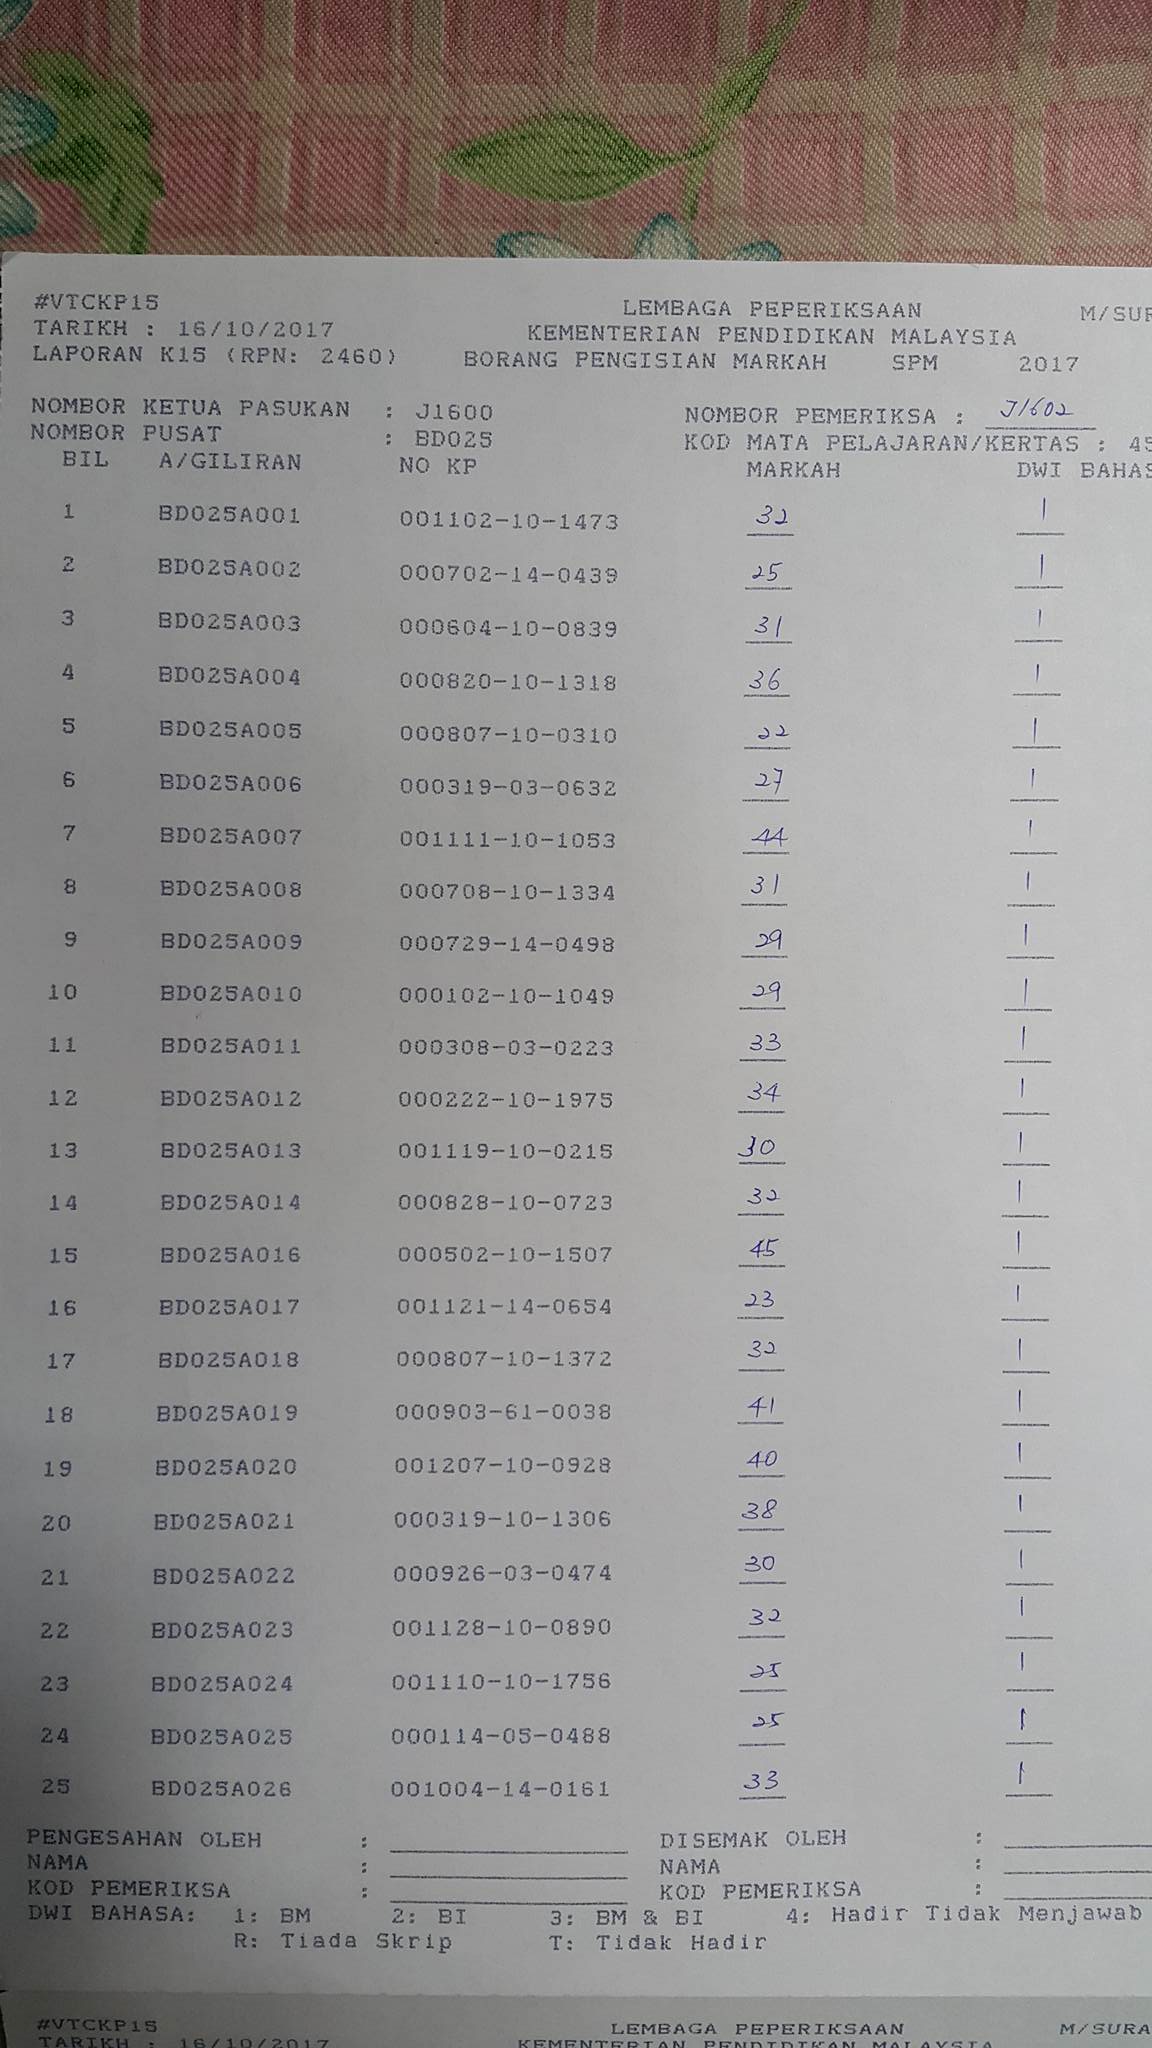 #VTCKP15 LEMBAGA PEPERIKSAAN M/SUR
TARIKH : 16/10/2017 KEMENTERIAN PENDIDIKAN MALAYSIA
LAPORAN K15 (RPN: 2460) BORANG PENGISIAN MARKAH SPM 2017
NOMBOR KETUA PASUKAN : J1600 NOMBOR PEMERIKSA : J1602
NOMBOR PUSAT : BD025 KOD MATA PELAJARAN/KERTAS : 45
BIL A/GILIRAN NO KP MARKAH DWI BAHAS
1 BD025A001 001102-10-1473 32 1
2 BD025A002 000702-14-0439 25 1
3 BD025A003 000604-10-0839 31 1
4 BD025A004 000820-10-1318 36 1
5 BD025A005 000807-10-0310 22 1
6 BD025A006 000319-03-0632 27 1
7 BD025A007 001111-10-1053 44 1
8 BD025A008 000708-10-1334 31 1
9 BD025A009 000729-14-0498 29 1
10 BD025A010 000102-10-1049 29 1
11 BD025A011 000308-03-0223 33 1
12 BD025A012 000222-10-1975 34 1
13 BD025A013 001119-10-0215 30 1
14 BD025A014 000828-10-0723 32 1
15 BD025A016 000502-10-1507 45 1
16 BD025A017 001121-14-0654 23 1
17 BD025A018 000807-10-1372 32 1
18 BD025A019 000903-61-0038 41 1
19 BD025A020 001207-10-0928 40 1
20 BD025A021 000319-10-1306 38 1
21 BD025A022 000926-03-0474 30 1
22 BD025A023 001128-10-0890 32 1
23 BD025A024 001110-10-1756 25 1
24 BD025A025 000114-05-0488 25 1
25 BD025A026 001004-14-0161 33 1
PENGESAHAN OLEH : DISEMAK OLEH :
NAMA : NAMA :
KOD PEMERIKSA : KOD PEMERIKSA :
DWI BAHASA: 1: BM 2: BI 3: BM & BI 4: Hadir Tidak Menjawab
R: Tiada Skrip T: Tidak Hadir
#VTCKP15 LEMBAGA PEPERIKSAAN M/SURA
TARIKH : 16/10/2017 KEMENTERIAN PENDIDIKAN MALAYSIA